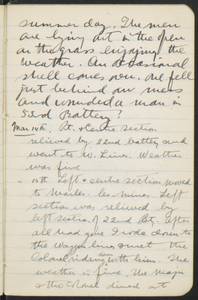 summer day. The men
are lying out in the open
on the grass enjoying the
weather. An occasional
shell comes over. One fell
just behind our mess
and wounded a man in
53rd Battery?
Mar 14th. Rt. & Centre section
relieved by 22nd Battery and
went to W. Lines. Weather
was fine.
15th Left & centre section moved
to Marles-les-Mines. Left
section was relieved by
left section of 22nd Bt. After
all had gone I rode down to
the Wagon lines & met the
Colonel riding with him. The
weather is fine. The Major
& the Colonel dined at